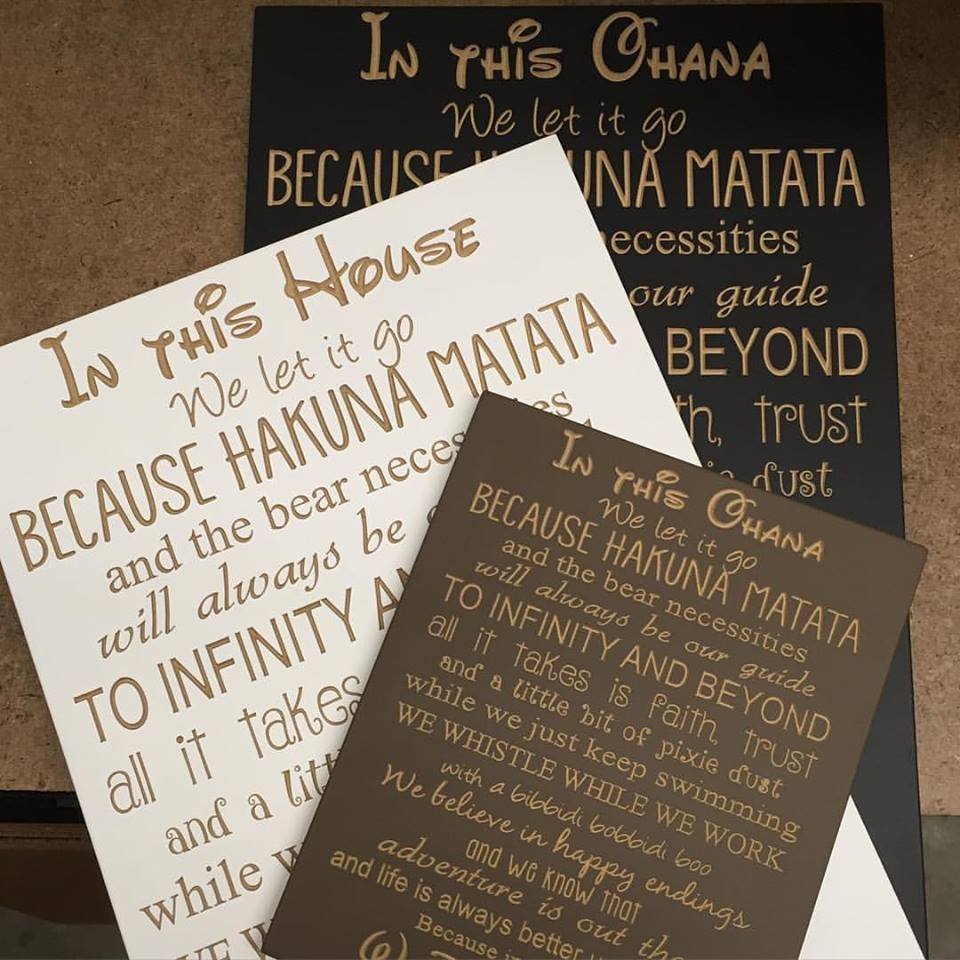 In this Ohana
We let it go
BECAUSE HAKUNA MATATA
necessities
our guide
BEYOND
trust
dust
In this House
We let it go
BECAUSE HAKUNA MATATA
and the bear
will always be
TO INFINITY
all it takes
and a
while
In this Ohana
We let it go
BECAUSE HAKUNA MATATA
and the bear necessities
will always be our guide
TO INFINITY AND BEYOND
all it takes is faith, trust
and a little bit of pixie dust
while we just keep swimming
WE WHISTLE WHILE WE WORK
with a bibbidi bobbidi boo
We believe in happy endings
and we know that
adventure is out
and life is always better
Because